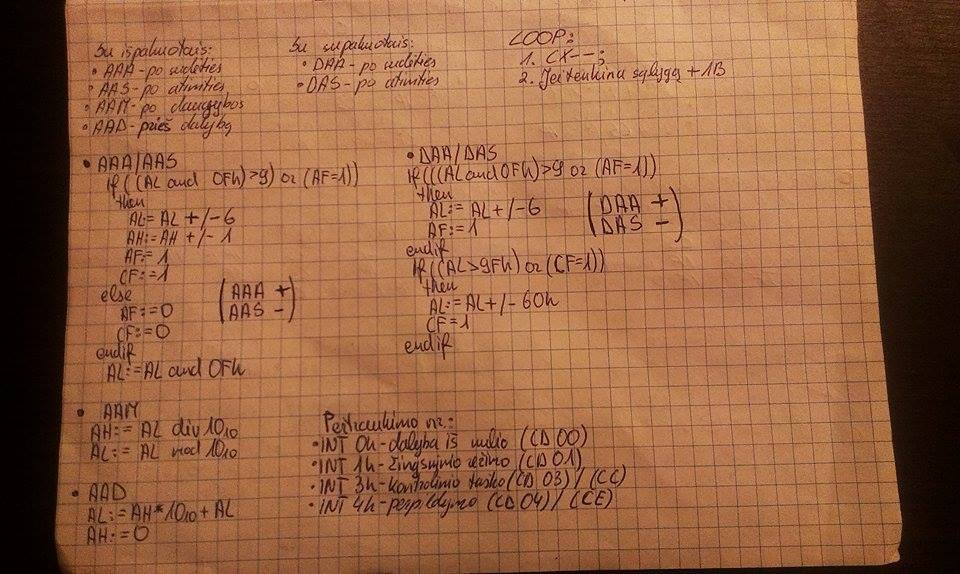 Su išpakuotais:
• AAA - po sudėties
• AAS - po atimties
• AAM - po daugybos
• AAD - prieš dalybą
Su supakuotais:
• DAA - po sudėties
• DAS - po atimties
LOOP:
1. CX--;
2. Jei tenkina sąlygą + 1B
• AAA/AAS
if ((AL and 0Fh) > 9) or (AF=1))
then
AL:= AL +/-6
AH:= AH +/- 1
AF:= 1
CF:= 1
else
AF:=0
CF:=0
endif
AL:=AL and 0Fh
(AAA +
AAS -)
• DAA/DAS
if (((AL and 0Fh)>9 or (AF=1)))
then
AL:= AL+/-6
AF:=1
endif
if ((AL>9Fh) or (CF=1))
then
AL:=AL+/- 60h
CF=1
endif
(DAA +
DAS -)
• AAM
AH:= AL div 10₁₀
AL:= AL mod 10₁₀
• AAD
AL:=AH*10₁₀+AL
AH:=0
Pertraukimo nr.:
• INT 0h - dalyba iš nulio (CD 00)
• INT 1h - žingsninio režimo (CD 01)
• INT 3h - kontrolinio taško (CD 03) / (CC)
• INT 4h - perpildymo (CD 04) / (CE)